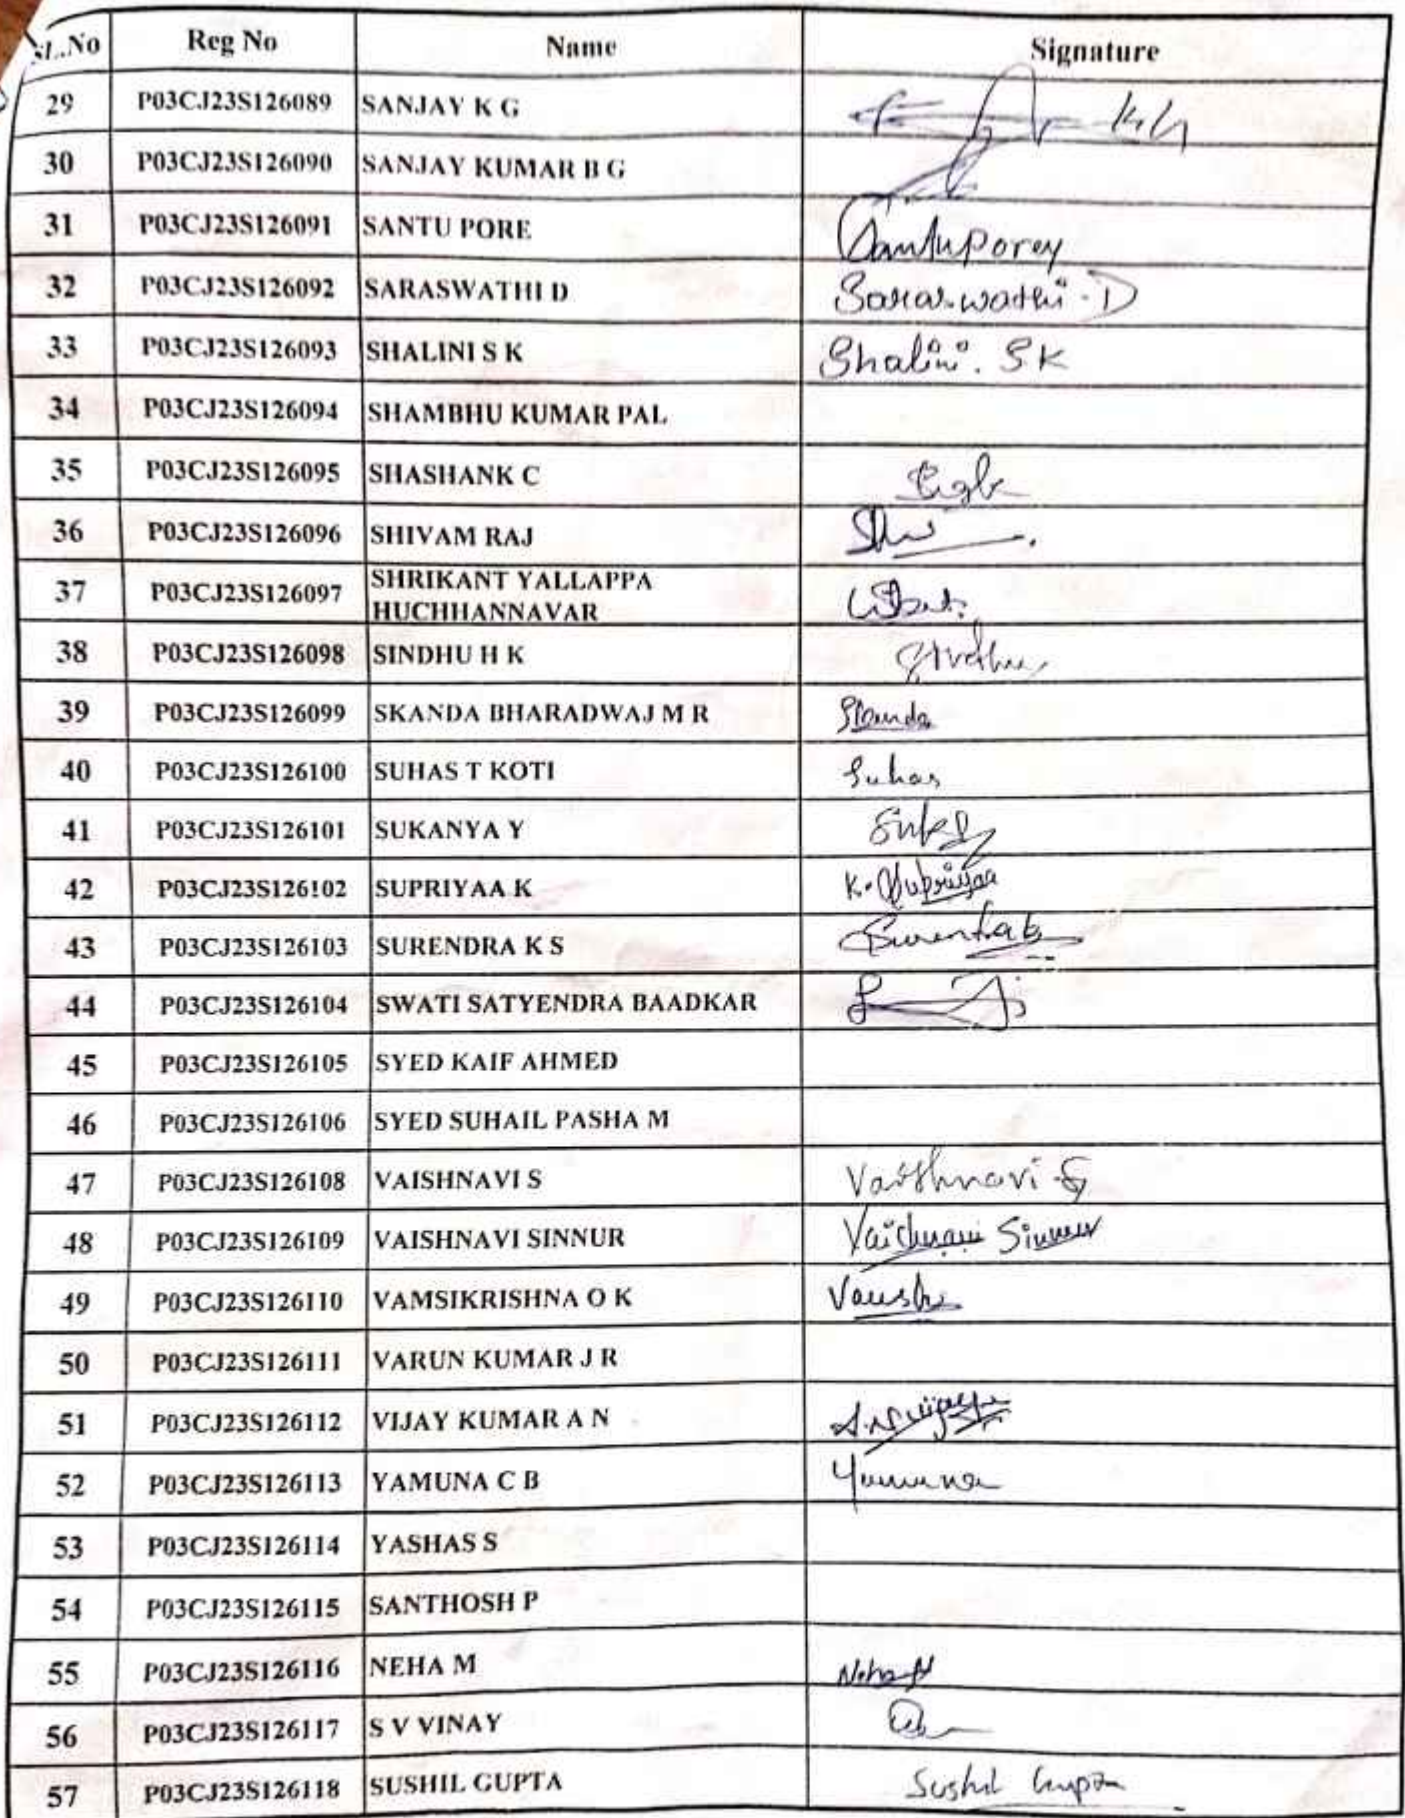 SL.No Reg No Name Signature
29 P03CJ23S126089 SANJAY K G
30 P03CJ23S126090 SANJAY KUMAR B G
31 P03CJ23S126091 SANTU PORE Santuporey
32 P03CJ23S126092 SARASWATHI D Saraswathi . D
33 P03CJ23S126093 SHALINI S K Shalini. S K
34 P03CJ23S126094 SHAMBHU KUMAR PAL
35 P03CJ23S126095 SHASHANK C
36 P03CJ23S126096 SHIVAM RAJ
37 P03CJ23S126097 SHRIKANT YALLAPPA
HUCHHANNAVAR
38 P03CJ23S126098 SINDHU H K Sindhu
39 P03CJ23S126099 SKANDA BHARADWAJ M R Skanda
40 P03CJ23S126100 SUHAS T KOTI Suhas
41 P03CJ23S126101 SUKANYA Y
42 P03CJ23S126102 SUPRIYAA K K. Supriyaa
43 P03CJ23S126103 SURENDRA K S
44 P03CJ23S126104 SWATI SATYENDRA BAADKAR
45 P03CJ23S126105 SYED KAIF AHMED
46 P03CJ23S126106 SYED SUHAIL PASHA M
47 P03CJ23S126108 VAISHNAVI S Vaishnavi S
48 P03CJ23S126109 VAISHNAVI SINNUR Vaishnavi Sinnur
49 P03CJ23S126110 VAMSIKRISHNA O K
50 P03CJ23S126111 VARUN KUMAR J R
51 P03CJ23S126112 VIJAY KUMAR A N
52 P03CJ23S126113 YAMUNA C B Yamuna
53 P03CJ23S126114 YASHAS S
54 P03CJ23S126115 SANTHOSH P
55 P03CJ23S126116 NEHA M Neha M
56 P03CJ23S126117 S V VINAY
57 P03CJ23S126118 SUSHIL GUPTA Sushil Gupta